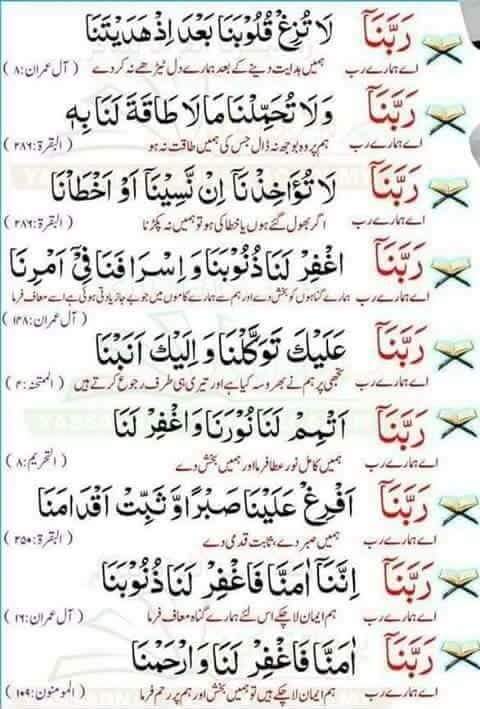 رَبَّنَآ لَا تُزِغْ قُلُوْبَنَا بَعْدَ اِذْ هَدَيْتَنَا
اے ہمارے رب ہمیں ہدایت دینے کے بعد ہمارے دل ٹیڑھے نہ کردے (آل عمران:۸)
رَبَّنَآ وَلَا تُحَمِّلْنَا مَا لَا طَاقَةَ لَنَا بِهٖ
اے ہمارے رب ہم پر وہ بوجھ نہ ڈال جس کی ہمیں طاقت نہ ہو (البقرۃ:۲۸۶)
رَبَّنَآ لَا تُؤَاخِذْنَآ اِنْ نَّسِيْنَآ اَوْ اَخْطَاْنَا
اے ہمارے رب اگر بھول گئے ہوں یا خطا کی ہو تو ہمیں نہ پکڑنا (البقرۃ:۲۸۶)
رَبَّنَآ اغْفِرْ لَنَا ذُنُوْبَنَا وَ اِسْرَافَنَا فِيْٓ اَمْرِنَا
اے ہمارے رب ہمارے گناہوں کو بخش دے اور ہم سے ہمارے کاموں میں جو بے جا زیادتی ہوئی ہے اسے معاف فرما
(آل عمران:۱۴۸)
رَبَّنَآ عَلَيْكَ تَوَكَّلْنَا وَ اِلَيْكَ اَنَبْنَا
اے ہمارے رب تجھی پر ہم نے بھروسہ کیا ہے اور تیری ہی طرف رجوع کرتے ہیں (الممتحنہ:۴)
رَبَّنَآ اَتْمِمْ لَنَا نُوْرَنَا وَ اغْفِرْ لَنَا
اے ہمارے رب ہمیں کامل نور عطا فرما اور ہمیں بخش دے (التحریم:۸)
رَبَّنَآ اَفْرِغْ عَلَيْنَا صَبْرًا وَّ ثَبِّتْ اَقْدَامَنَا
اے ہمارے رب ہمیں صبر دے، ثابت قدمی دے (البقرۃ:۲۵۰)
رَبَّنَآ اِنَّنَآ اٰمَنَّا فَاغْفِرْ لَنَا ذُنُوْبَنَا
اے ہمارے رب ہم ایمان لا چکے اس لئے ہمارے گناہ معاف فرما (آل عمران:۱۶)
رَبَّنَآ اٰمَنَّا فَاغْفِرْ لَنَا وَ ارْحَمْنَا
اے ہمارے رب ہم ایمان لا چکے ہیں تو ہمیں بخش اور ہم پر رحم فرما (المومنون:۱۰۹)